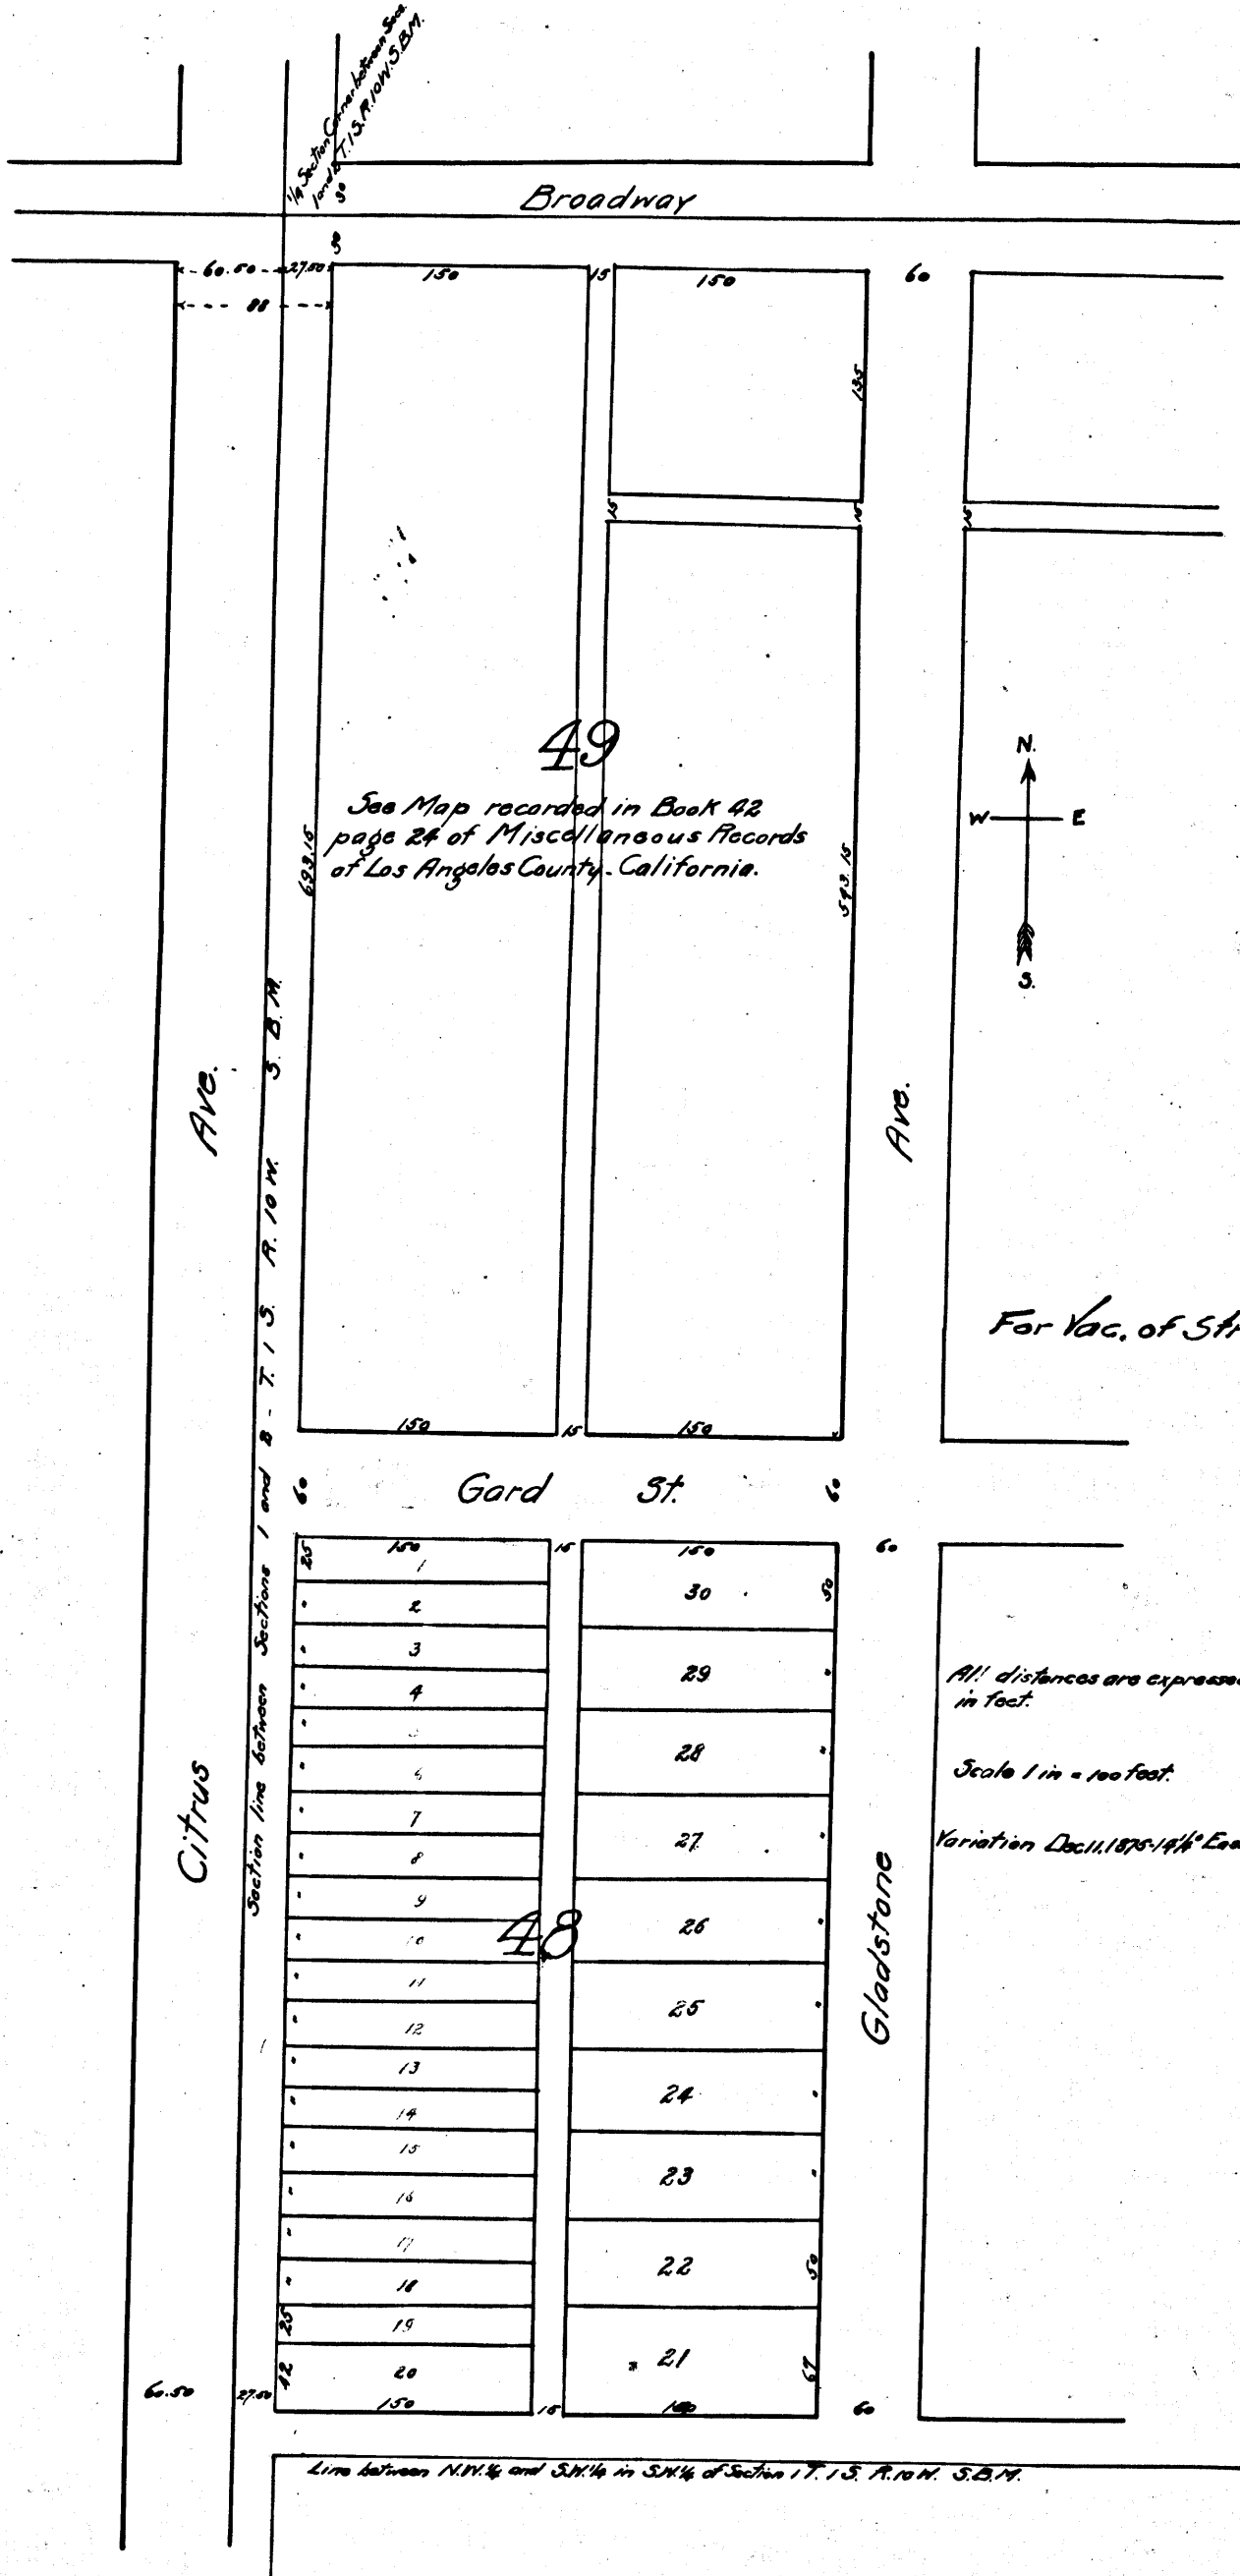 1/4 Section Corner between Secs.
1 and 2 T. 1 S. R. 10 W. S. B. M.
30
Broadway
30
60.50 27.50
150
15
150
60
88
135
15
15
15
49
See Map recorded in Book 42
page 24 of Miscellaneous Records
of Los Angeles County. California.
693.15
543.15
N.
W E
S.
Citrus Ave.
Section line between Sections 1 and 2 - T. 1 S. R. 10 W. S. B. M.
Gladstone Ave.
For Vac. of Str
150
15
150
60
Gard St.
60
25
150
15
150
60
1
2
3
4
5
6
7
8
9
10
11
12
13
14
15
16
17
18
25
19
42
20
48
30
50
29
28
27
26
25
24
23
22
50
21
67
All distances are expressed
in feet.
Scale 1 in = 100 feet.
Variation Dec 11, 1875 - 14½° Eas
60.50
27.50
150
15
150
60
Line between N.W.¼ and S.W.¼ in S.W.¼ of Section 1 T. 1 S. R. 10 W. S.B.M.